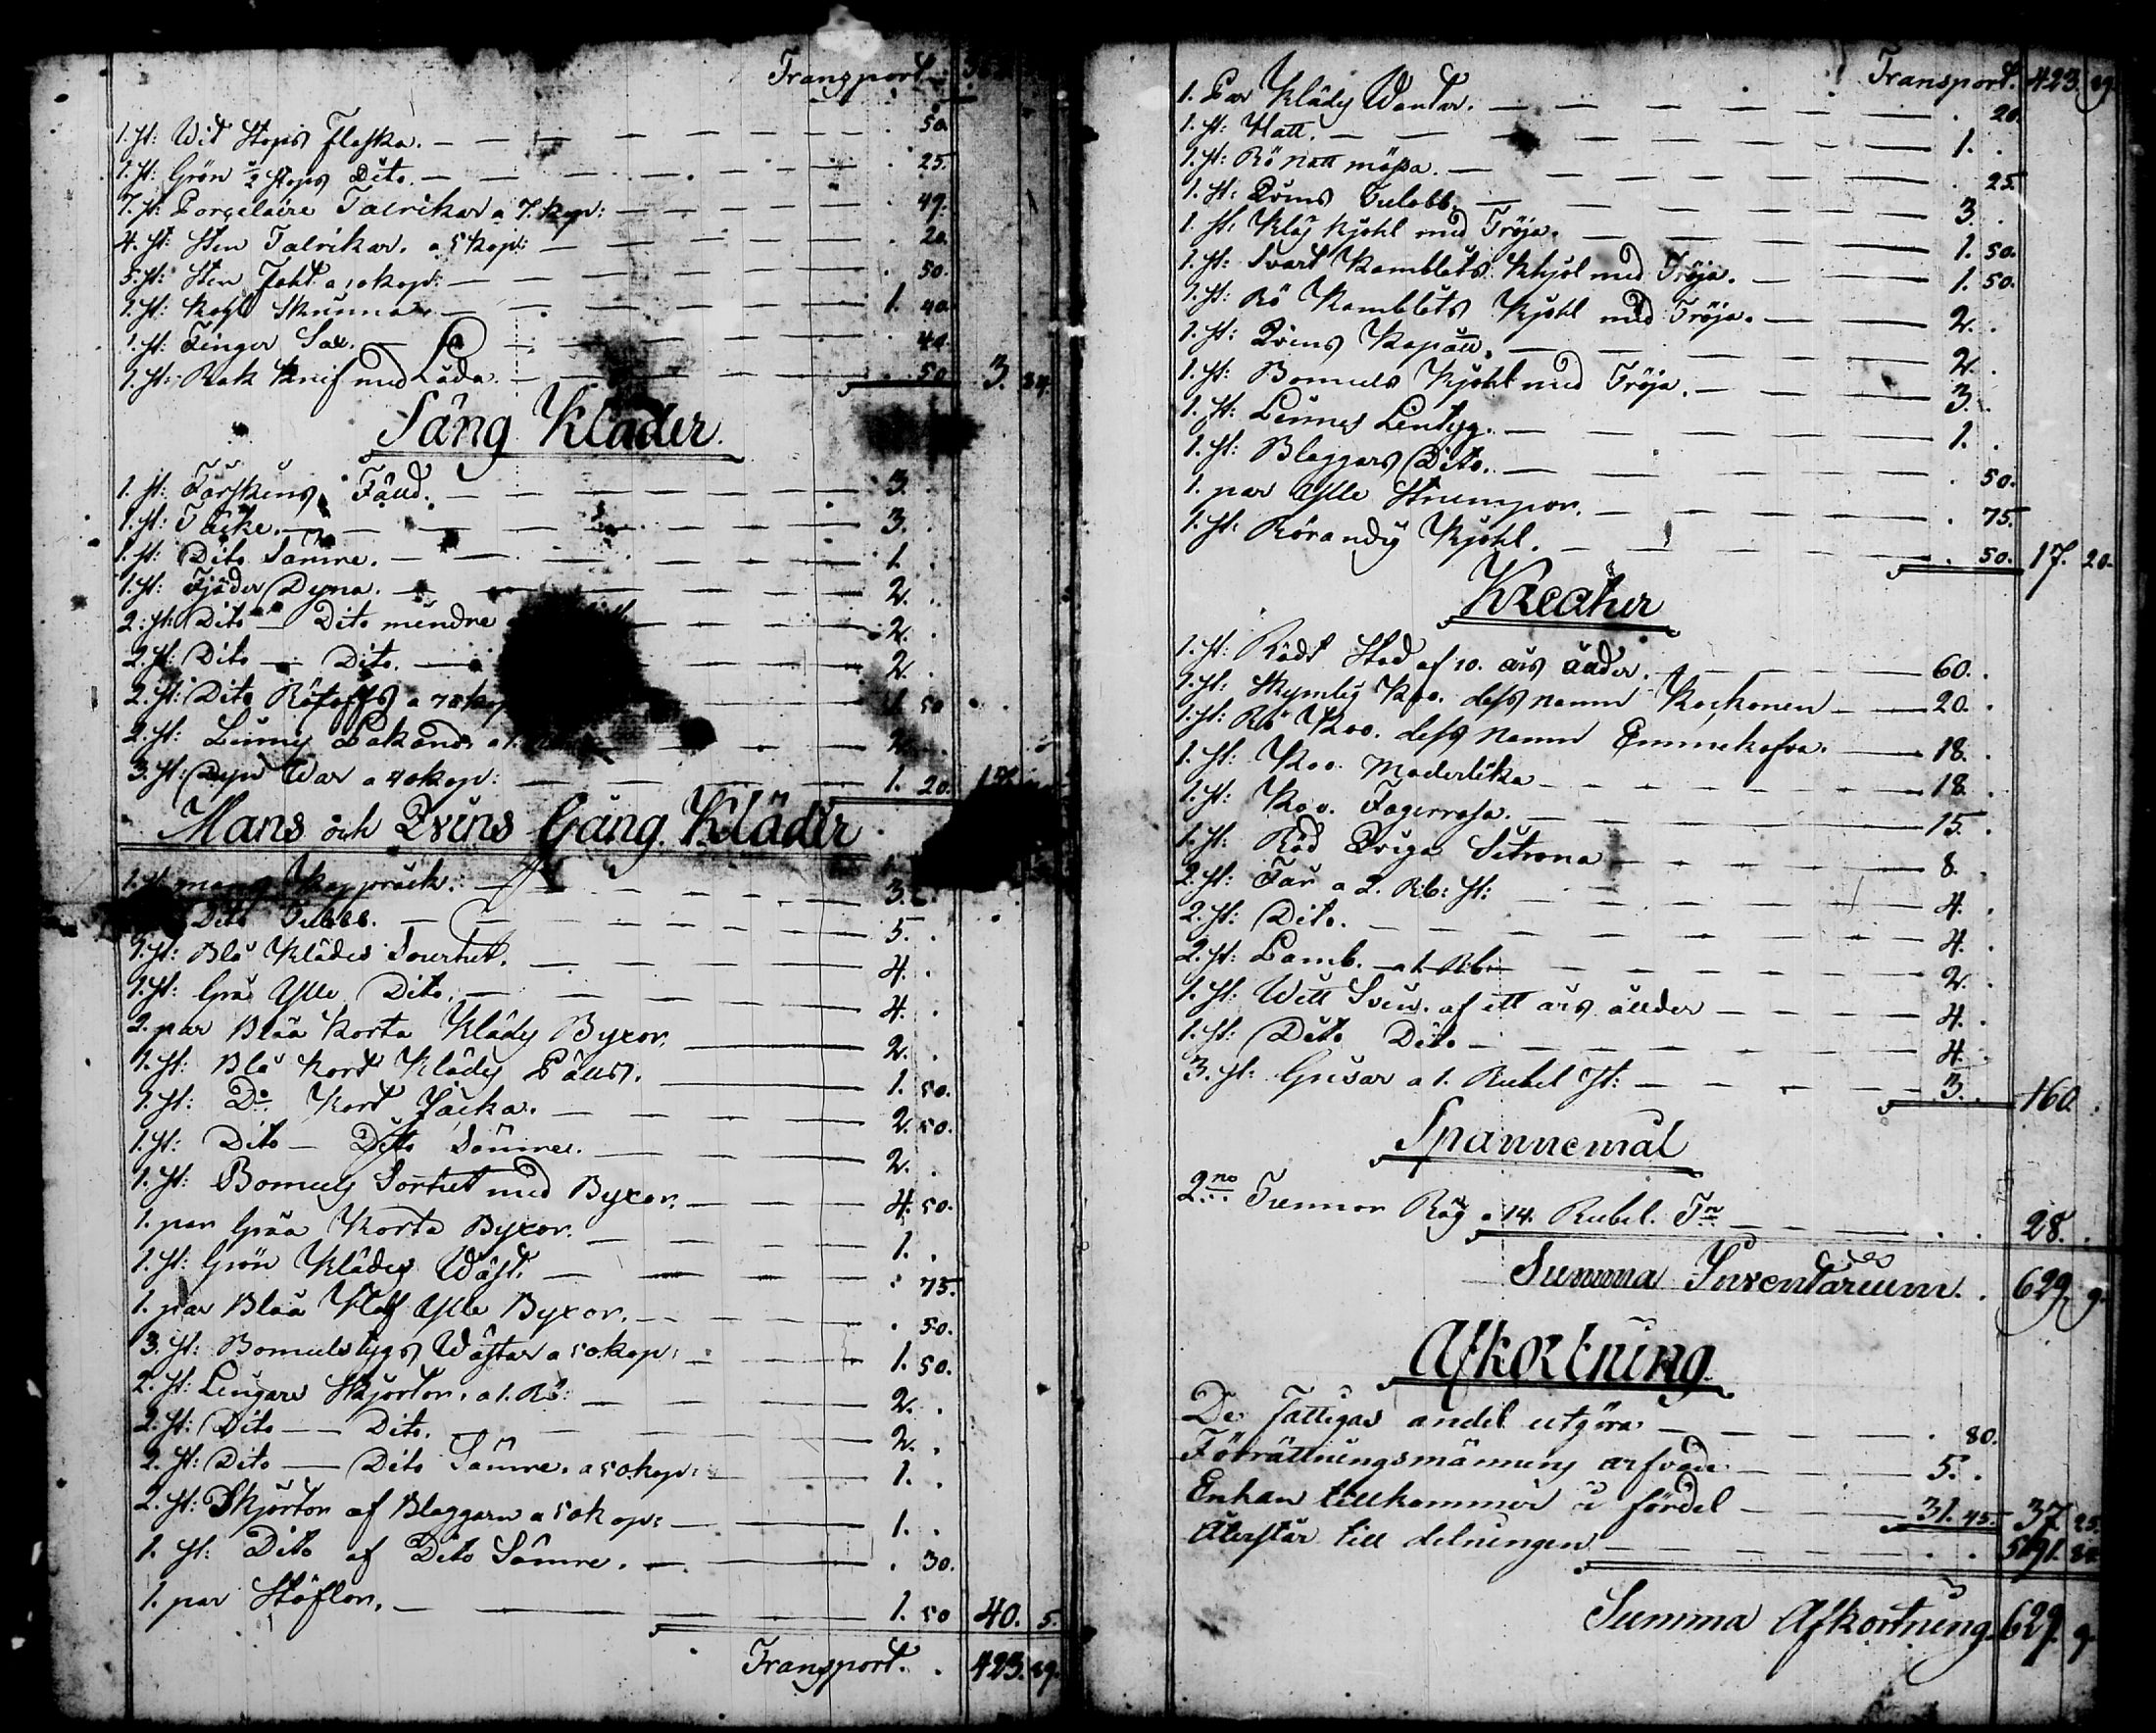 Transport.
1. st: Wit Stops Flaska. 50.
1. st: Grön ½ Stops Dito. 25.
7. st: Porcelaire Talrikar a 7. kop: 49.
4. st: Sten Talrikar. a 5 kop: 20.
5. st: Sten Faht a 10 kop: 50.
1. st: 1. 40.
1. st: Finger Sax. 40.
1. st: Rak Knif med Låda. 50 3. 84.
Säng Kläder.
1. st: Fårskins Fäll. 3.
1. st: Täcke. 3.
1. st: Dito Sämre. 1.
1. st: Fjäder Dyna. 2.
2. st: Dito Dito mindre 2.
2. st: Dito Dito. 2.
2. st: Dito a 75 kop 1. 50
2. st: Lakand a 1. 2.
3. st: Dyn War a 40 kop: 1. 20.
Mans och Qvins Gång Kläder
1. st mans Kappräck. 3.
Dito Tulubb. 5.
1. st: Blå Klädes Sourtut. 4.
1. st: Grå Ylle Dito. 4.
2. par Blåa Korta Klädes Byxor. 2.
1. st: Blå Kort Klädes 1. 50.
1. st: Do Kort Jacka. 2. 50.
1. st: Dito Dito Sämre. 2.
1. st: Bomuls Sortut med Byxor. 4. 50.
1. par Gråa Korta Byxor. 1.
1. st: Grön Klädes Wäst. 75.
1. par Blåa Ylle Byxor. 50.
3. st: Bomulstygs Wästar a 50. kop: 1. 50.
2. st: Lingarns Skjortor. a 1. Rb: 2.
2. st: Dito Dito. 2.
2. st: Dito Dito Sämre. a 50. kop: 1.
2. st: Skjortor af Blaggarn a 50 kop: 1.
1. st: Dito af Dito Sämre. 30.
1. par Stöflor. 1. 50 40. 5.
Transport. 423. 89.
Transport. 423. 89.
1. Par Kläds Wantar. 20.
1. st: Hatt. 1.
1. st: Rö natt mössa. 25.
1. st: Qvins Tulobb. 3.
1. st: Kjohl med Tröja. 1. 50.
1. st: Svart Kamblots Khjol med Tröja. 1. 50.
1. st: Rö Kamblots Kjohl med Tröja. 2.
1. st: Qvins Kapått. 2.
1. st: Bomuls Kjohl med Tröja. 3.
1. st: Linnes Lintyg. 1.
1. st: Blaggars Dito. 50.
1. par Ylle Strumpor. 75.
1. st: Rörandig Kjohl. 50. 17. 20.
Kreatur
1. st: Rödt Stod af 10. års ålder. 60.
1. st: Skymlig Koo. dess namn 20.
1. st: Rö Koo. dess namn Emmekofva. 18.
1. st: Koo. Moderlika 18.
1. st: Koo. Fagerrosa. 15.
1. st: Röd Qviga Sitrona 8.
2. st: Får a 2. Rb: st: 4.
2. st: Dito. 4.
2. st: Lamb. a 1. Rb: 2.
1. st: Witt Svin. af ett års ållder 4.
1. st: Dito Dito 4.
3. st: Grisar a 1. Rubel st: 3. 160.
Spannemål
2no Tunnor Råg a 14. Rubel. Tn 28.
Summa Inventarium. 629. 9.
Afkortning
De Fattigas andel utgöra 80.
Förrättningsmännens arfvode 5.
Enkan tillkommer i fördel 31. 45. 37. 25.
Återstår till delningen 591. 84.
Summa Afkortning. 629. 9.